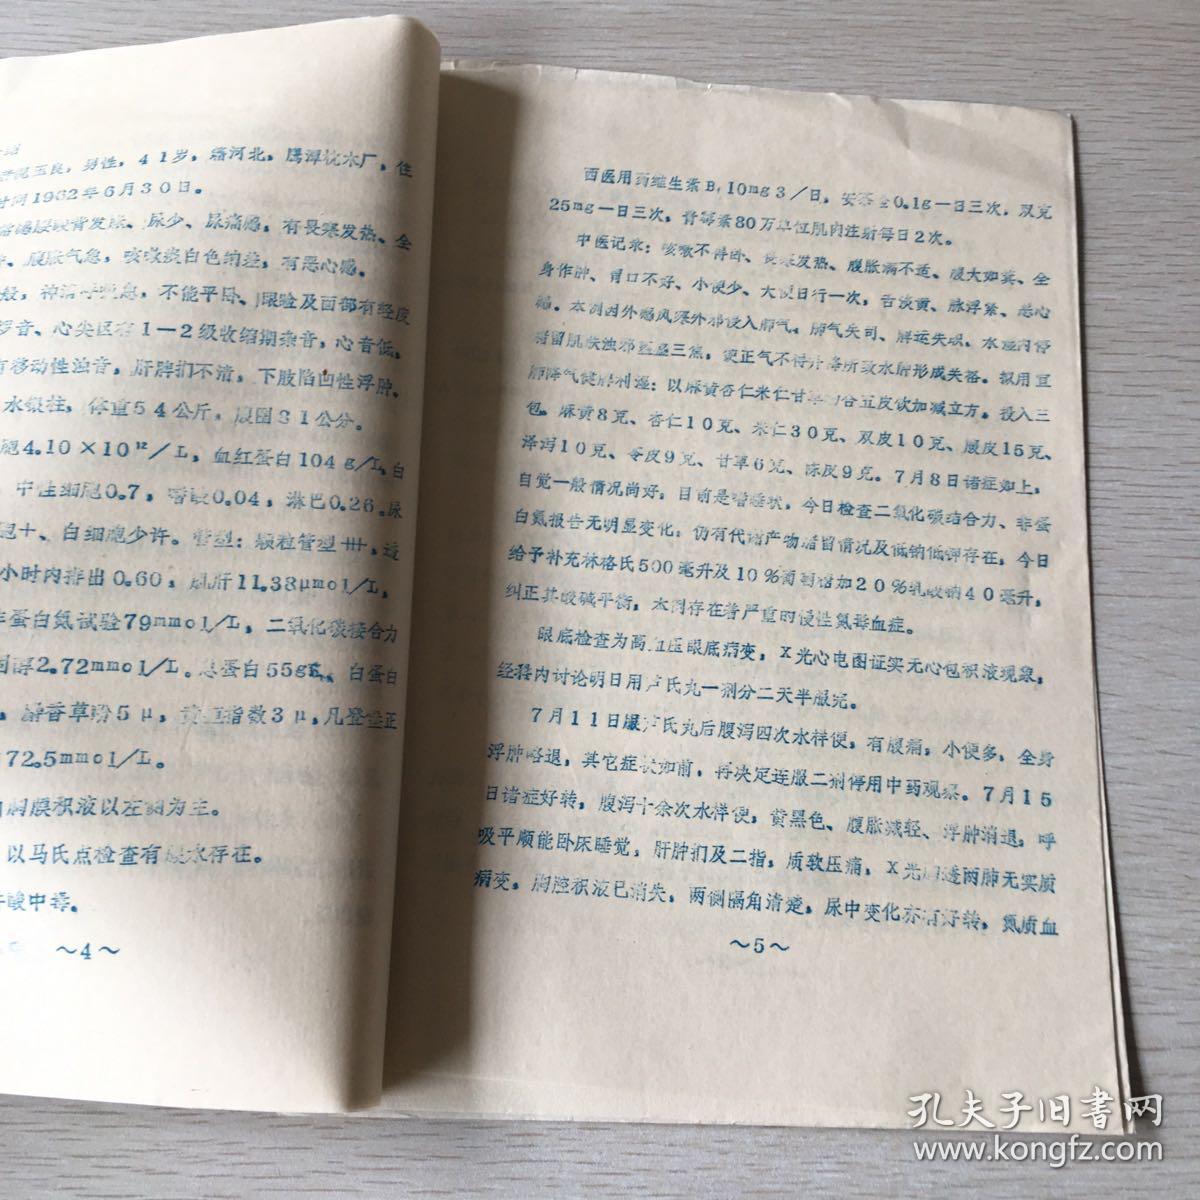 玉良，男性，41岁，籍河北，鹰潭枕木厂，住
时间1962年6月30日。
腰背发胀、尿少、尿痛感，有畏寒发热、全
、腹胀气急，咳嗽痰白色纳差，有恶心感。
般，神清呼吸急，不能平卧、眼睑及面部有轻度
罗音、心尖区有1－2级收缩期杂音，心音低，
有移动性浊音，肝脾扪不清，下肢陷凹性浮肿、
水银柱，体重54公斤，腹围81公分。
胞4.10×10¹²/L，血红蛋白104g/L，白
，中性细胞0.7，嗜酸0.04，淋巴0.26。尿
胞+、白细胞少许。管型：颗粒管型卅，透
小时内排出0.60，肌肝11.38μmol/L，
非蛋白氮试验79mmol/L，二氧化碳接合力
固醇2.72mmol/L。总蛋白55g，白蛋白
，麝香草酚5μ，黄疸指数3μ，凡登白正
72.5mmol/L。
胸膜积液以左侧为主。
以马氏点检查有腹水存在。
酸中毒。
～4～
西医用药维生素B₁10mg3/日，安茶0.1g一日三次，双克
25mg一日三次，青霉素80万单位肌肉注射每日2次。
中医记录：咳嗽不得卧、畏寒发热、腹胀满不适、腹大如箕、全
身作肿、胃口不好、小便少、大便日行一次，舌淡黄、脉浮紧、恶心
感。本例因外感风寒外邪侵入肺气，肺气失司、脾运失职、水湿内停
滞留肌肤浊邪三焦，使正气不得升降所致水肿形成失格。拟用宣
肺降气健脾利湿：以麻黄杏仁米仁甘草汤合五皮饮加减立方。投入三
包。麻黄8克、杏仁10克、米仁30克、双皮10克、腹皮15克、
泽泻10克、苓皮9克、甘草6克、陈皮9克。7月8日诸症如上，
自觉一般情况尚好，目前是嗜睡状，今日检查二氧化碳结合力、非蛋
白氮报告无明显变化，仍有代谢产物潴留情况及低钠低钾存在，今日
给予补充林格氏500毫升及10%葡萄糖加20%乳酸钠40毫升，
纠正其酸碱平衡，本例存在着严重的慢性氮毒血症。
眼底检查为高血压眼底病变，X光心电图证实无心包积液现象，
经科内讨论明日用卢氏丸一剂分二天半服完。
7月11日服卢氏丸后腹泻四次水样便，有腹痛，小便多，全身
浮肿略退，其它症状如前，再决定连服二剂停用中药观察。7月15
日诸症好转，腹泻十余次水样便，黄黑色、腹胀减轻、浮肿消退，呼
吸平顺能卧床睡觉，肝肿扪及二指，质软压痛，X光胸透两肺无实质
病变，胸腔积液已消失，两侧膈角清楚，尿中变化亦有好转，氮质血
～5～
孔夫子旧书网
www.kongfz.com